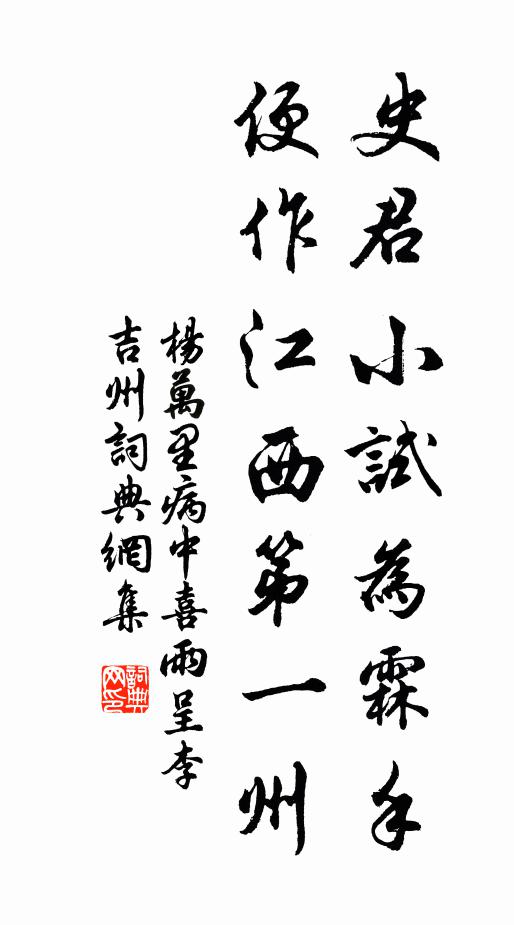 史君小試為霖手
便作江西第一州
楊萬里病中喜雨呈李
吉州詞典網集
詞典网印